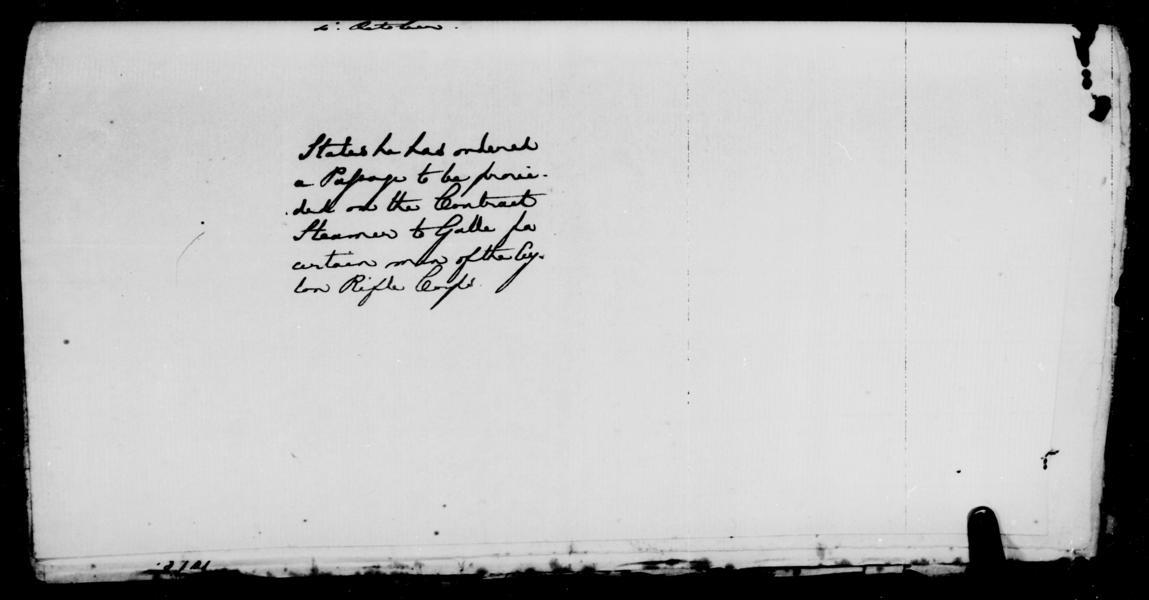 October.
States he has ordered
a Passage to be provi-
ded on the Contract
Steamer to Galle for
certain men of the Cey-
lon Rifle Corps.